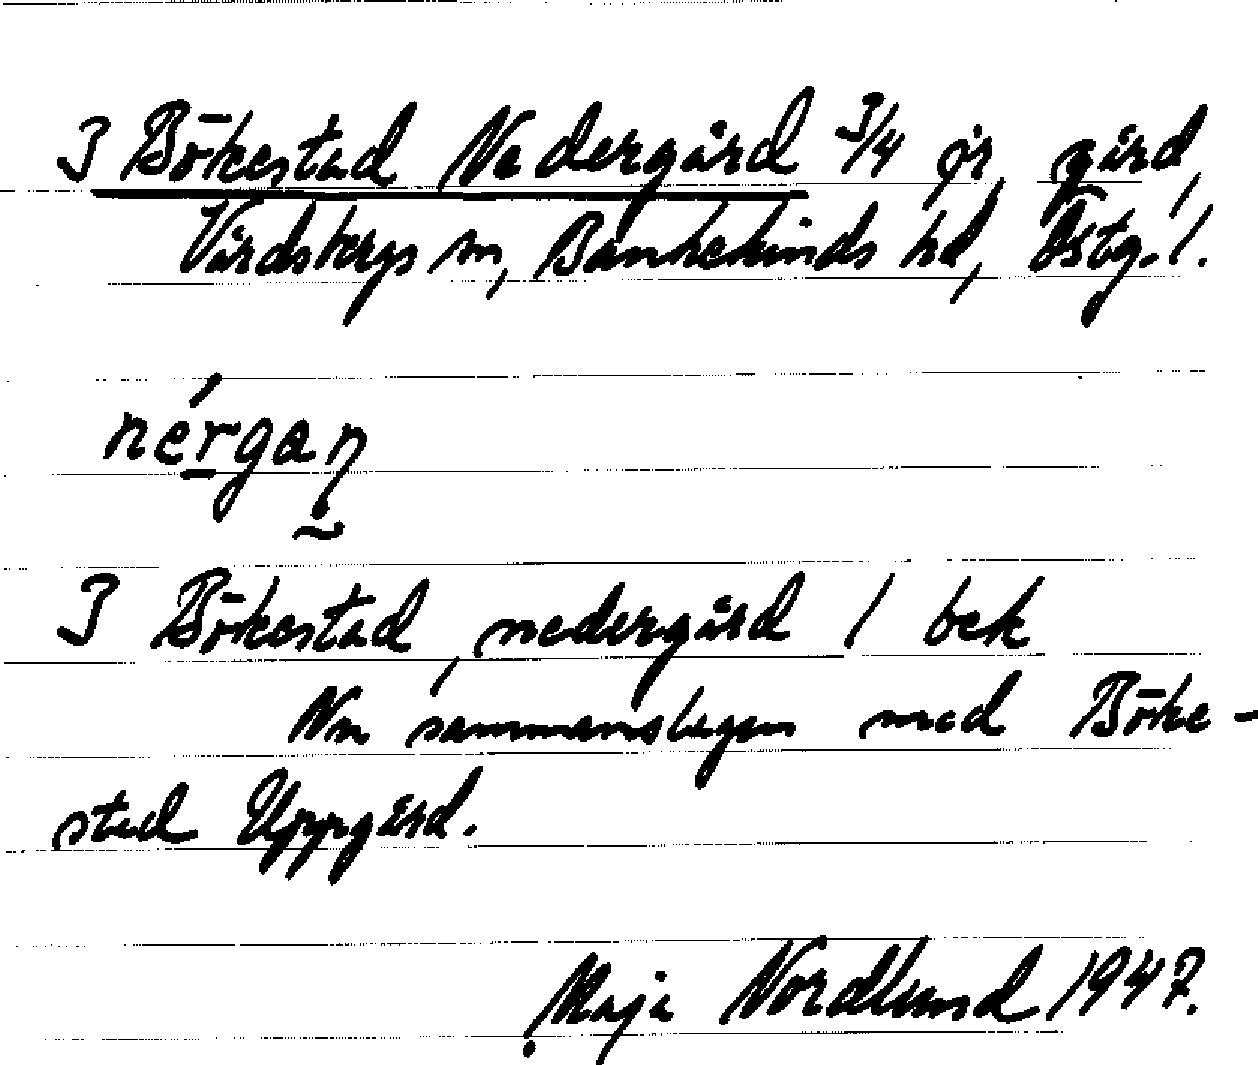 3 Bökestad Nedergård 3/4 jr, gård,
Vårdsbergs sn, Bankekinds hd, Östg. l.
nérgaŋ
3 Bökestad, nedergård / bek
Nu sammanslagen med Böke-
stad Uppgård.
Maja Nordlund 1947.